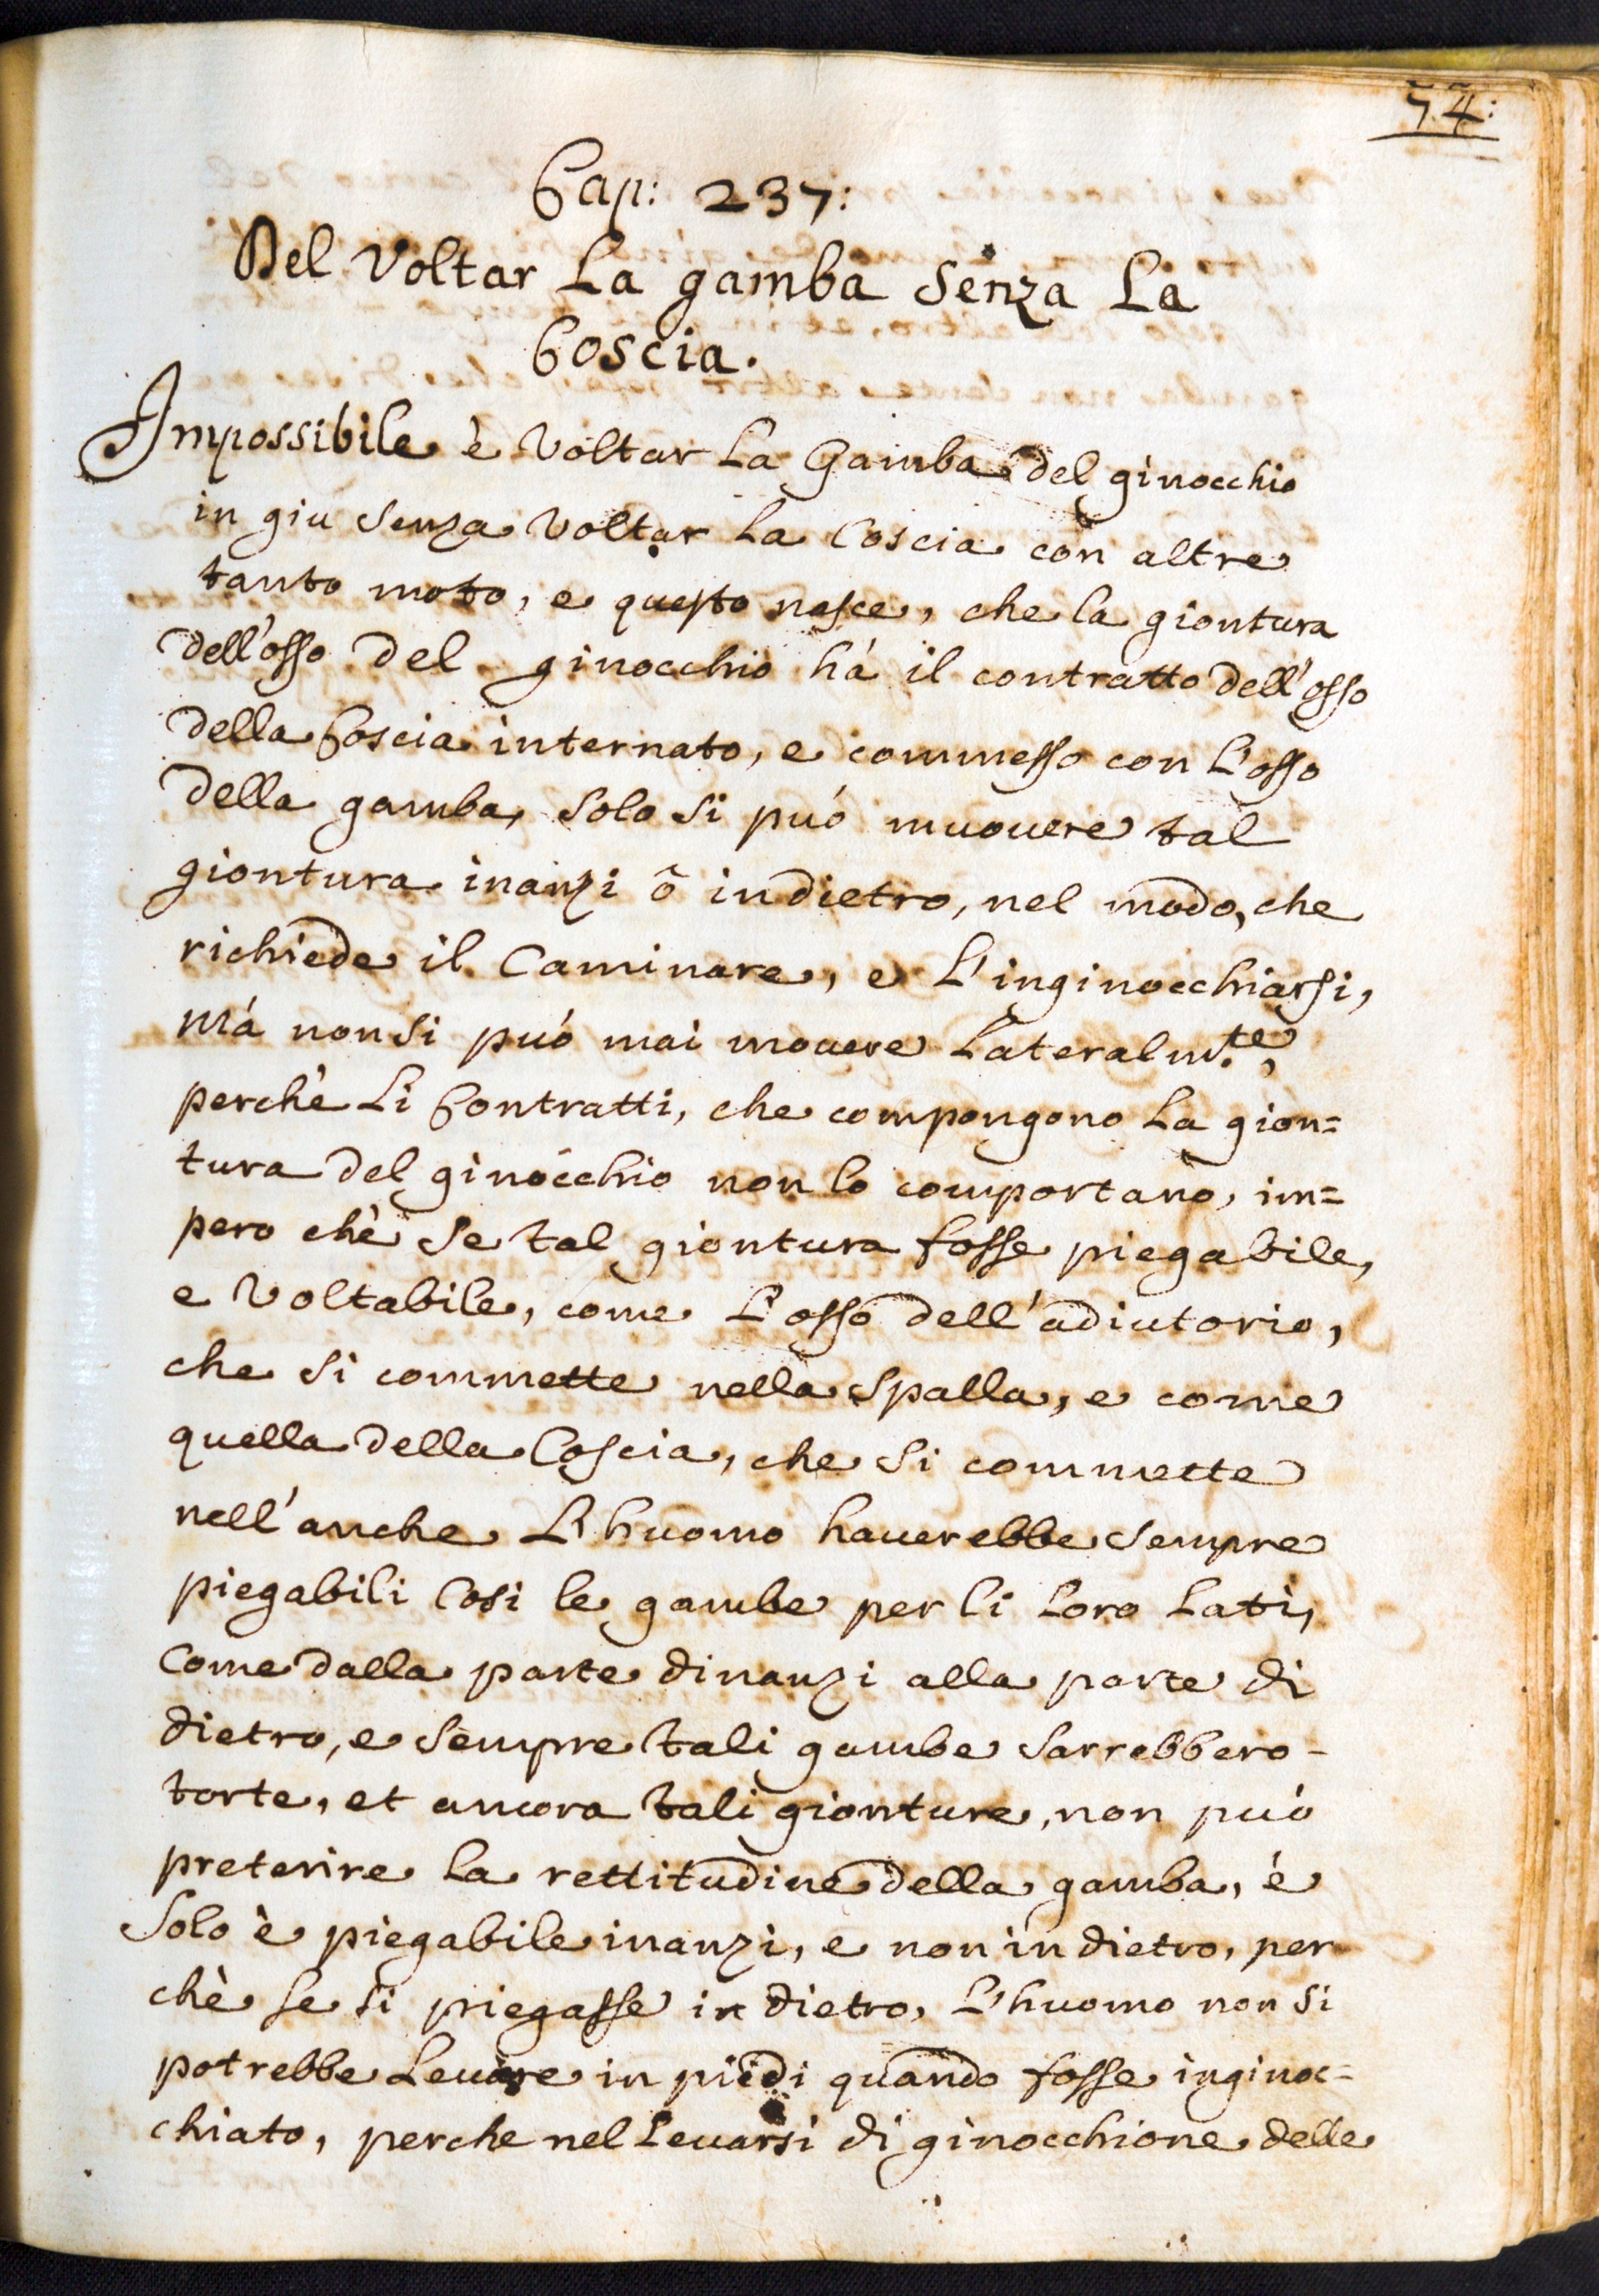 74:
Cap: 237:
Del Voltar La gamba Senza La
Coscia.
Impossibile è Voltar La Gamba del ginocchio
in giu Senza Voltar La Coscia con altre
tanto moto, e questo nasce, che la giontura
dell'osso del ginocchio há il contratto dell'osso
della Coscia internato, e commesso con L'osso
della gamba, Solo Si puó muouere tal
giontura inanzi ô indietro, nel modo, che
richiede il Caminare, e L'inginocchiarsi,
má non Si puó mai mouere Lateralm.te,
perchè Li Contratti, che compongono La gion=
tura del ginocchio non lo comportano, im=
pero chè Se tal giontura fosse piegabile,
e Voltabile, come L'osso dell'adiutorio,
che Si commette nella Spalla, e come
quella della Coscia, che Si commette
nell'anche L'huomo hauerebbe Sempre
piegabili Cosi le gambe per li Loro Lati,
Come dalla parte dinanzi alla parte di
dietro, e Sempre tali gambe Sarrebbero-
torte, et ancora tali gionture, non puó
preterire la rettitudine della gamba, è
Solo è piegabile inanzi, e non in dietro, per
chè se si piegasse in dietro, L'huomo non Si
potrebbe Leuare in piedi quando fosse inginoc=
chiato, perche nel Leuarsi di ginocchione delle